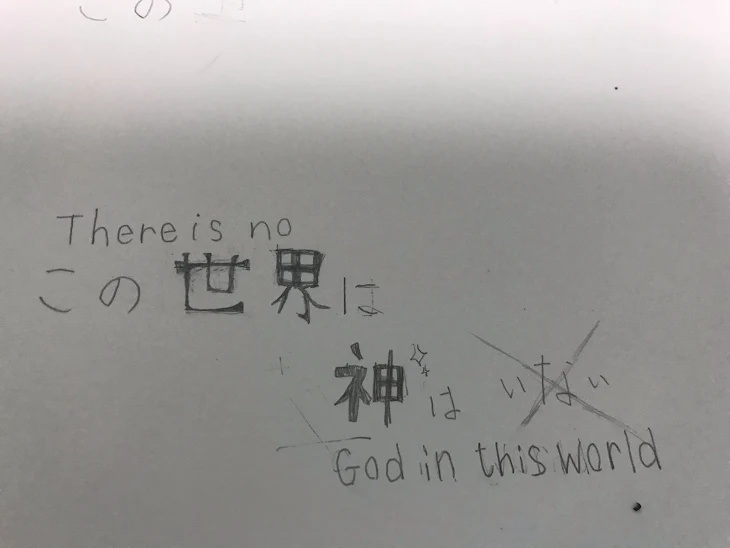 この
There is no
この世界は
神は いない
God in this world